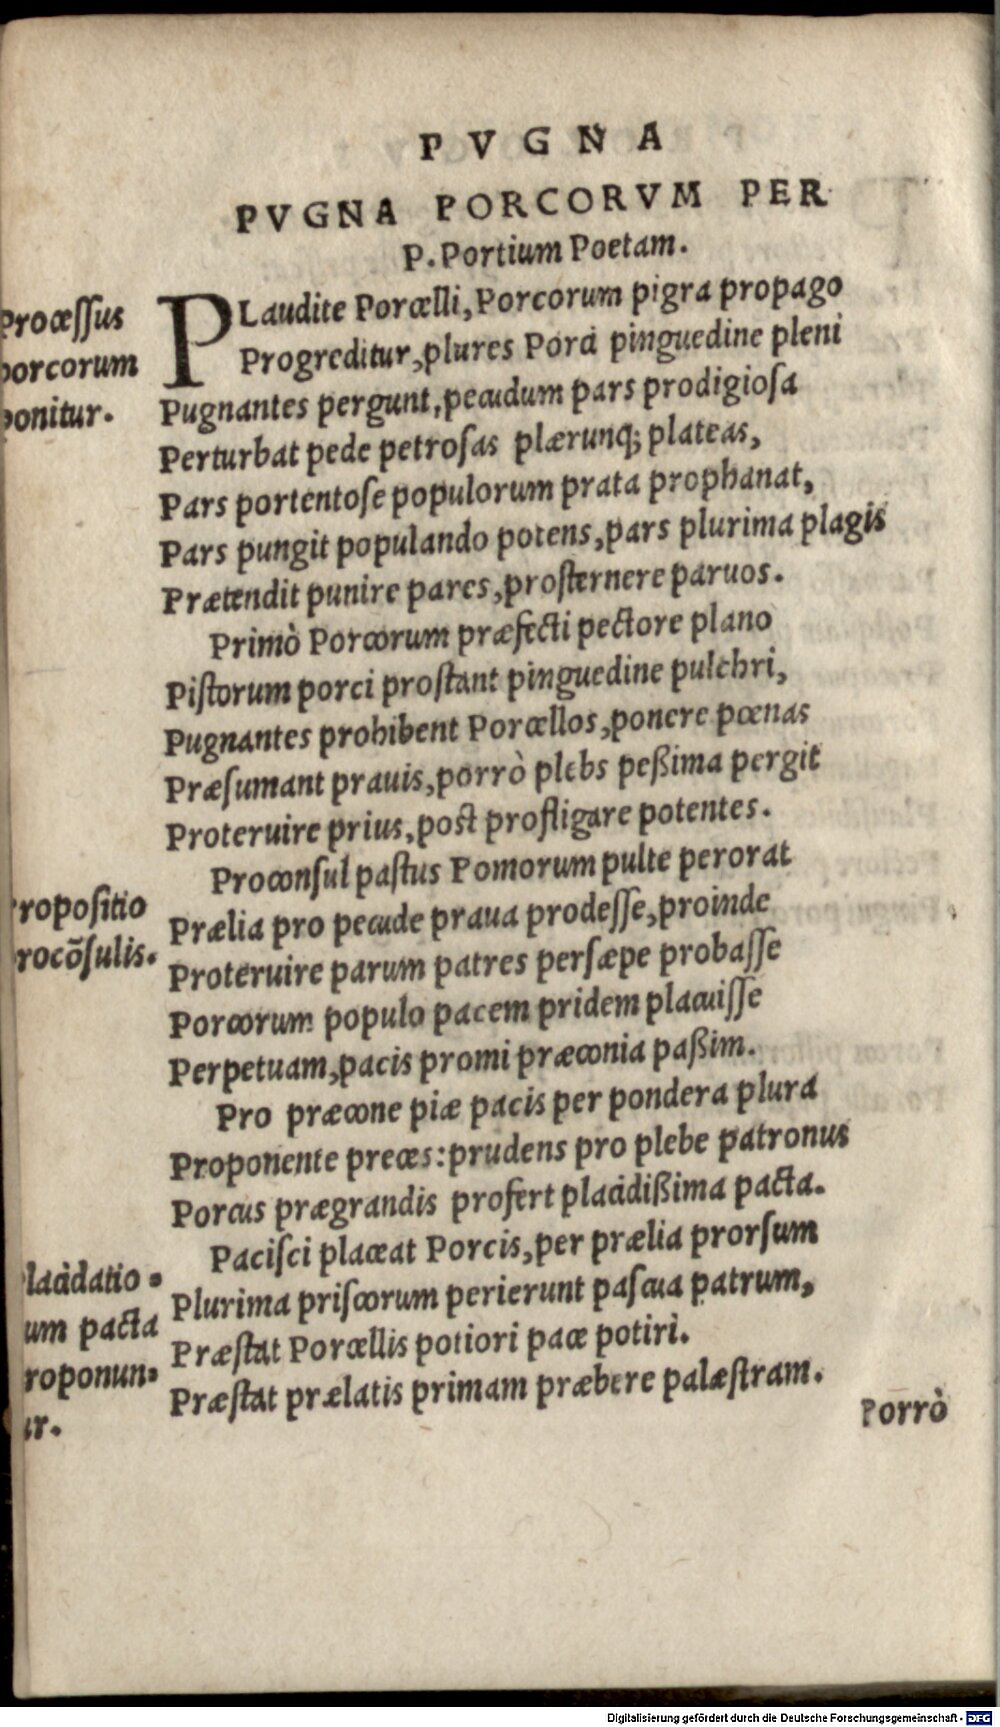 PVGNA
PVGNA PORCORVM PER
P. Portium Poetam.
Processus
porcorum
ponitur.
PLaudite Porcelli, Porcorum pigra propago
Progreditur, plures Porci pinguedine pleni
Pugnantes pergunt, pecudum pars prodigiosa
Perturbat pede petrosas plærunq; plateas,
Pars portentose populorum prata prophanat,
Pars pungit populando potens, pars plurima plagis
Prætendit punire pares, prosternere paruos.
Primò Porcorum præfecti pectore plano
Pistorum porci prostant pinguedine pulchri,
Pugnantes prohibent Porcellos, ponere pœnas
Præsumant prauis, porrò plebs peßima pergit
Proteruire prius, post profligare potentes.
Proconsul pastus Pomorum pulte perorat
Propositio
rocõsulis.
Prælia pro pecude praua prodesse, proinde
Proteruire parum patres persæpe probasse
Porcorum populo pacem pridem placuisse
Perpetuam, pacis promi præconia paßim.
Pro præcone piæ pacis per pondera plura
Proponente preces: prudens pro plebe patronus
Porcus prægrandis profert placidißima pacta.
Pacisci placeat Porcis, per prælia prorsum
lacidatio=
um pacta
roponun=
ur.
Plurima priscorum perierunt pascua patrum,
Præstat Porcellis potiori pace potiri.
Præstat prælatis primam præbere palæstram.
Porrò
Digitalisierung gefördert durch die Deutsche Forschungsgemeinschaft - DFG